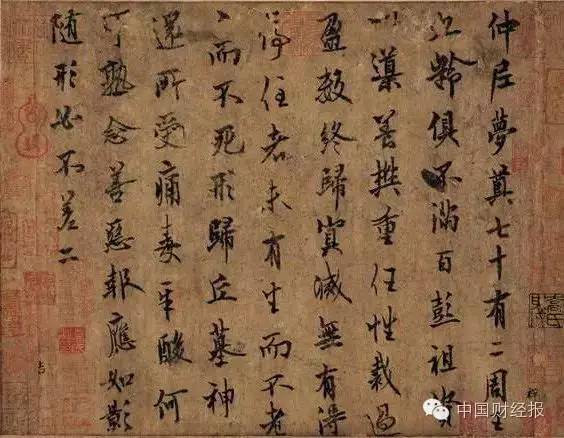 仲尼夢奠七十有二周王
九齡俱不滿百彭祖資
以導養樊重任性裁過
盈數終歸冥滅無有得
停住者未有生而不老
〻而不死形歸丘墓神
還所受痛毒辛酸何
可熟念善惡報應如影
隨形必不差二
中国财经报